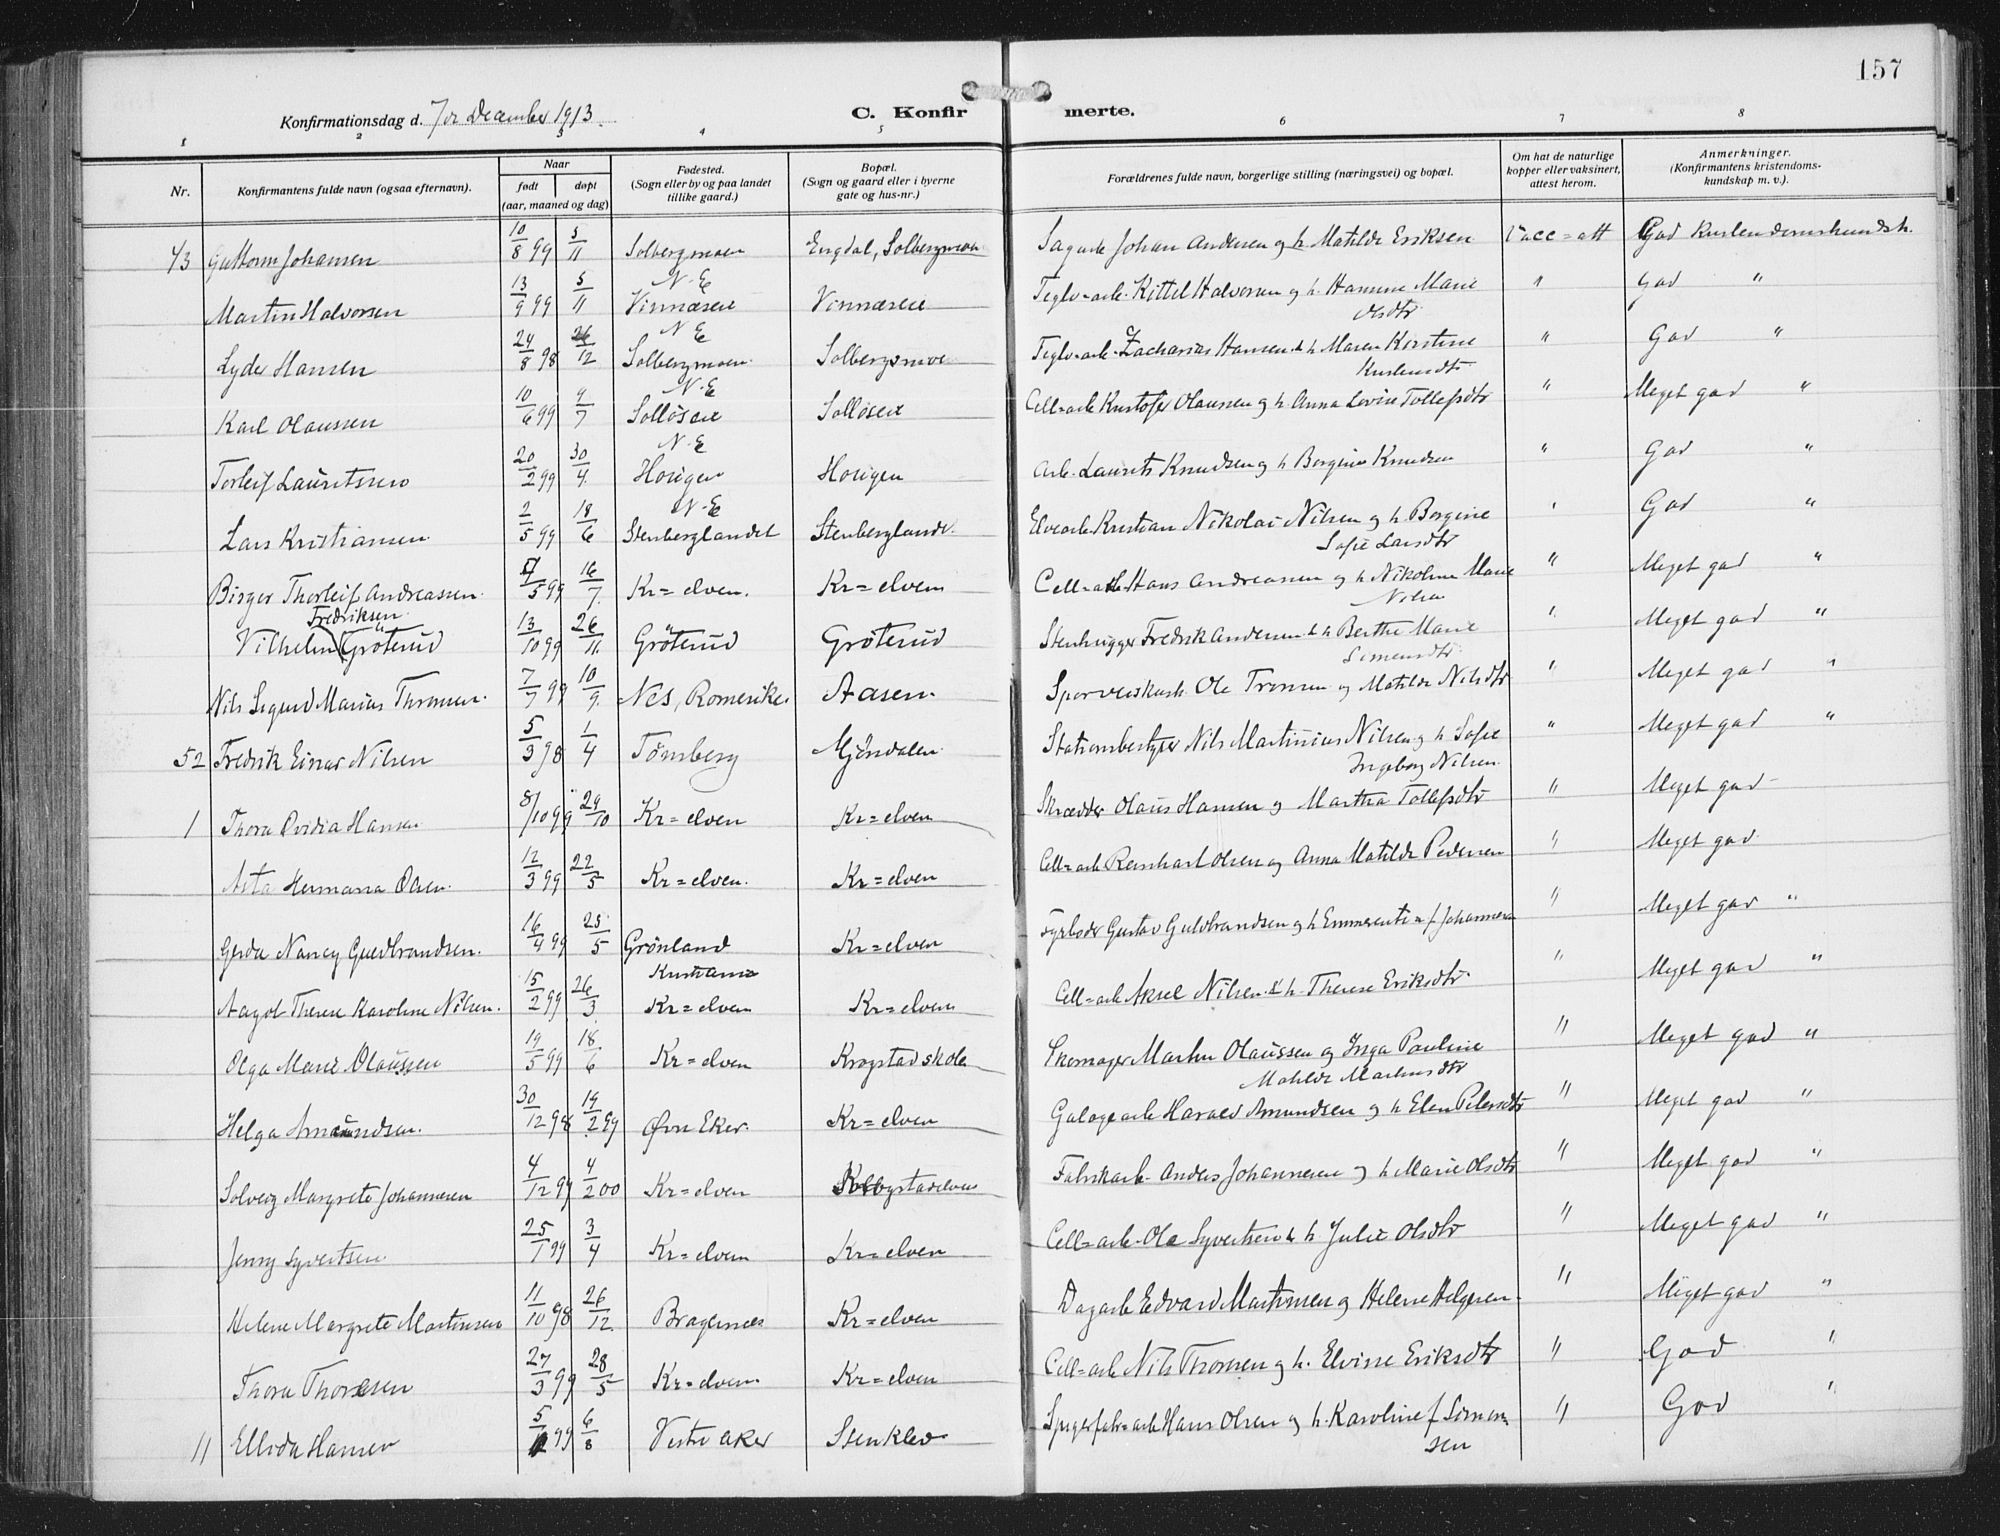 157
Konfirmationsdag d. 7de December 1913.
C. Konfirmerte.
1 2 3 4 5 6 7 8
Nr. Konfirmantens fulde navn (ogsaa efternavn). Naar født døpt (aar, maaned og dag) Fødested. (Sogn eller by og paa landet tillike gaard.) Bopæl. (Sogn og gaard eller i byerne gate og hus-nr.) Forældrenes fulde navn, borgerlige stilling (næringsvei) og bopæl. Om hat de naturlige kopper eller vaksinert, attest herom. Anmerkninger. (Konfirmantens kristendoms-kundskap m. v.).
43 Guttorm Johansen 10/8 99 5/11 Solbergmoen Engdal, Solbergmoen Sagarb Johan Andersen og h. Matilde Eriksen Vacc=att God Kristendomskundsk.
Martin Halvorsen 13/9 99 5/11 N.E Vinnæseie Vinnæseie Teglv=arb. Kittel Halvorsen og h. Hanna Marie Olsdtr " God "
Lyder Hansen 24/8 98 26/12 N E Solbergmoen Solbergsmoe Teglv=arb. Zacharias Hansen & h Maren Kirstine " God "
Karl Olaussen 10/6 99 9/7 N.E Solløseie Solløseie Cell=arb Kristofer Olaussen og h. Anna Lovise Tollefsdtr " Meget god "
Torleif Lauritsen 20/2 99 30/4 N.E Horigen Horigen Arb. Laurits Knudsen og h Borgine Knudsen " God "
Lars Kristiansen 2/5 99 18/6 N.E Stenberglandet Stenberglandt. Elvearb Kristian Nikolai Nilsen og h. Borgine Sofie Larsdtr " God "
Birger Thorleif Andreassen /5 99 16/7 Kr=elven. Kr=elven Cell=arb Hans Andreassen og h Nikoline Marie Nilsen " Meget god "
Vilhelm (Fredriksen Grøterud 13/10 99 26/11. Grøterud Grøterud Stenhugger Fredrik Andersen & h Berthe Marie Simensdtr " Meget god "
Nils Sigurd Marius Thronsen. 7/7 99 10/9 Nes, Romerike. Aasen. Sporveiskusk Ole Tronsen og Matilde Nilsdtr " Meget god "
52 Fredrik Einar Nilsen 5/3 98 1/4 Tønsberg Mjøndalen Stationsbestyrer Nils Martinius Nilsen og h Sofie Ingeborg Nilsen " Meget god "
1 Thora Ovidia Hansen 8/10 99 29/10 Kr=elven Kr=elven Skrædder Olaus Hansen og Martha Tollefsdtr " Meget god
Asta Hermana Olsen. 12/3 99 22/5 Kr=elven. Kr=elven Cell=arb Reinhart Olsen og Anna Matilde Pedersen " Meget god
Gerda Nancy Guldbrandsen. 16/4 99 25/5 Grønland Kristiania Kr=elven Fyrbøder Gustav Guldbrandsen og h Emmerentie f Johannesen " Meget god "
Aagot Therese Karoline Nilsen. 15/2 99 26/3 Kr=elven Kr=elven Cell=arb Aksel Nilsen & h. Therese Eriksdtr. " Meget god "
Olga Marie Olaussen 19/5 99 18/6 Kr=elven Krogstad skole Skomager Martin Olaussen og Inga Pauline Matilde Martinsdtr " Meget god "
Helga Amundsen. 30/12 98 19/2 99 Øvre Eker. Kr=elven Galogearb Harald Amundsen og h Elen Petersdtr " Meget god "
Solveig Margrete Johannesen 4/12 99 4/2 00 Kr=elven Krogstadelven Fabrikarb. Anders Johannesen og h Marie Olsdtr " Meget god "
Jenny Syvertsen 25/1 99 3/4 Kr=elven Kr=elven Cell=arb. Ole Syvertsen & h Julie Olsdtr " Meget god "
Helene Margrete Martinsen 11/10 98 26/12. Bragernes Kr=elven Dagarb Edvard Martinsen og Helene Helgesen. " Meget god "
Thora Thoresen 27/3 99 28/5 Kr=elven. Kr=elven Cell=arb Nils Thoresen og h. Elvine Eriksdtr " God "
11 Ellida Hansen 5/ 99 6/8 Vestre Aker Stenklev Spigerfabr=arb Hans Olsen og h. Karoline f. Simonsen " God "